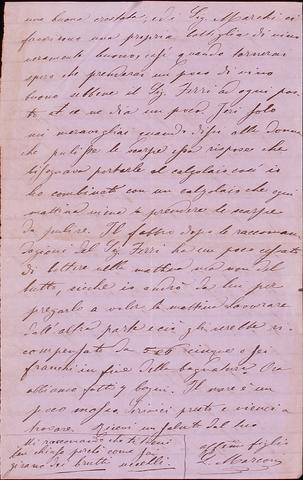 una buona crostata, ed i Sig. Marchi ci
favorirono una propria bottiglia di vino
veramente buono, così quando tornerai
spero che prenderai un poco di vino
buono sebbene il Sig. Ferri ad ogni pas-
to ce ne dia un poco. Ieri solo
mi meravigliai quando dissi alla donna
che pulisse le scarpe essa rispose che
bisognava portarle al calzolaio così io
ho combinato con un calzolaio che ogni
mattina viene a prendere le scarpe
da pulire. Il fabbro dopo le raccoman-
dazioni del Sig. Ferri ha un poco cessato
di battere nella mattina ma non del
tutto, sicché io andrò da lui per
pregarlo a voler la mattina lavorare
dall'altra parte e ciò gli sarebbe ri-
compensato da cinque o sei
franchi in fine della bagnatura. Ora
abbiamo fatto 4 bagni. Il mare è un
poco mosso. Scrivici presto e vienci a
trovare. Ricevi un saluto dal tuo
affmo figlio
G. Marconi
Mi raccomando che tu tieni
ben chiuso perché come sai
girano dei brutti uccelli.